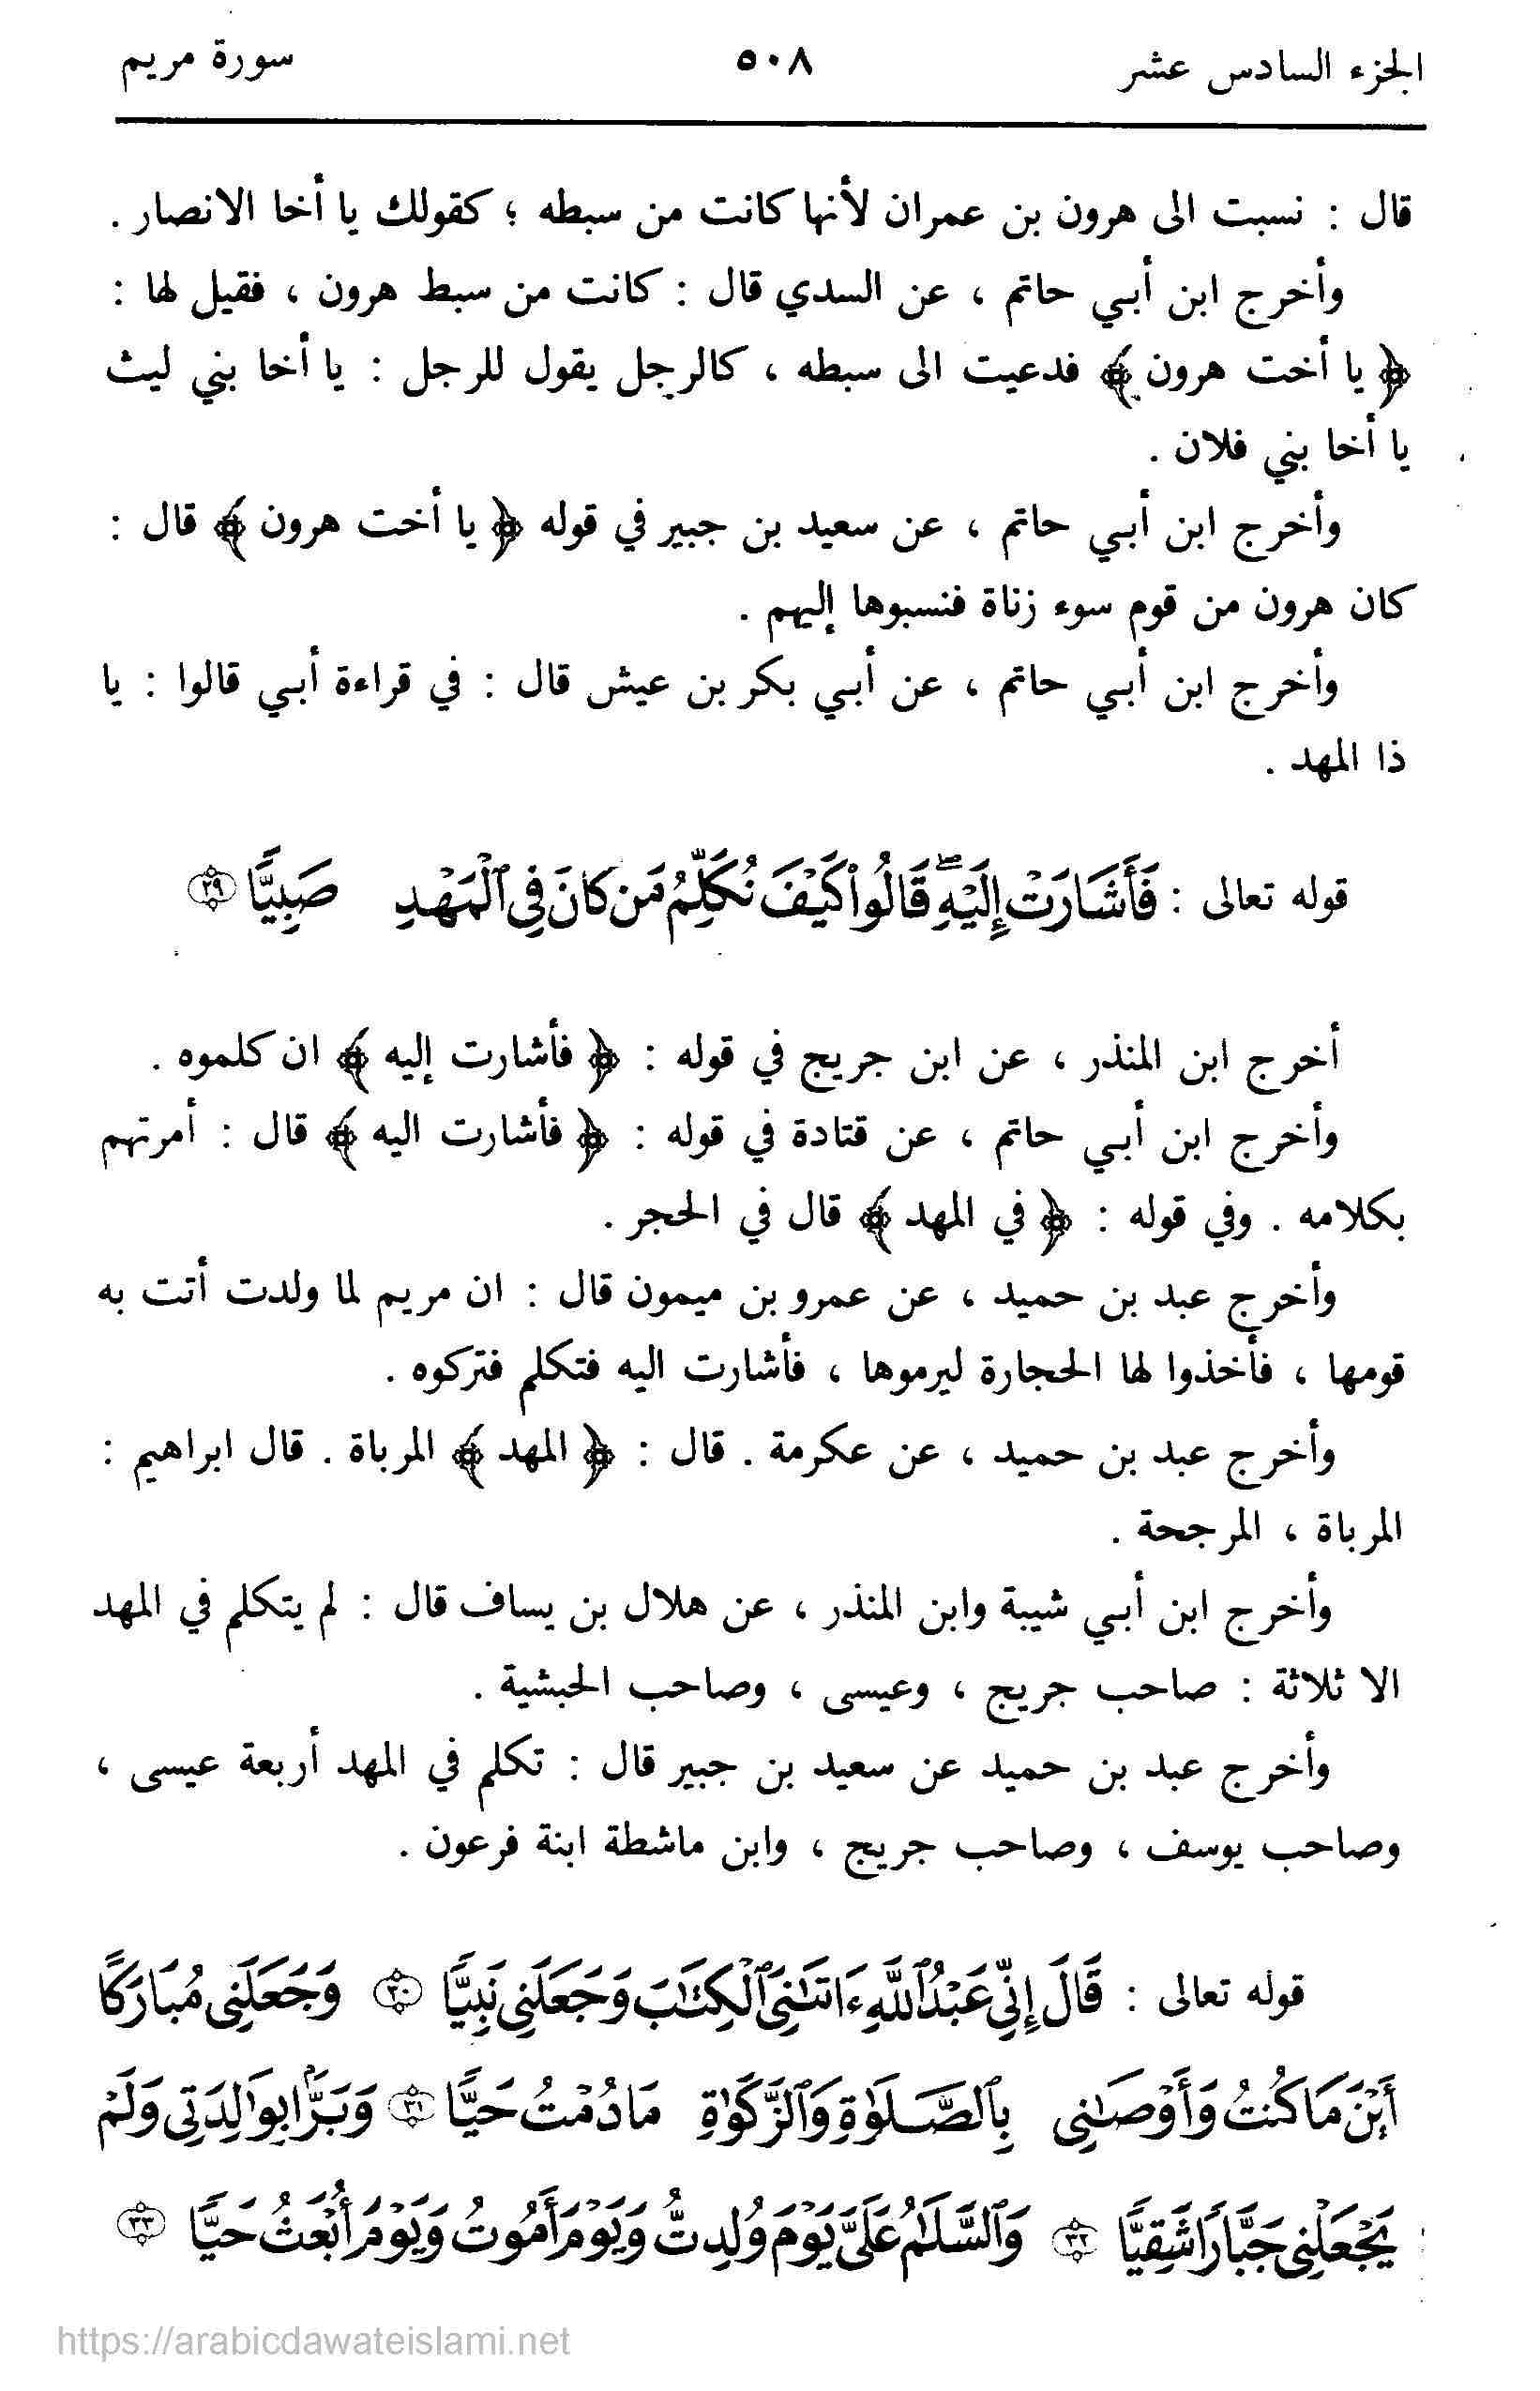 الجزء السادس عشر ٥٠٨ سورة مريم
قال : نسبت الى هرون بن عمران لأنها كانت من سبطه ؛ كقولك يا أخا الانصار .
وأخرج ابن أبي حاتم ، عن السدي قال : كانت من سبط هرون ، فقيل لها :
﴿ يا أخت هرون ﴾ فدعيت الى سبطه ، كالرجل يقول للرجل : يا أخا بني ليث
يا أخا بني فلان .
وأخرج ابن أبي حاتم ، عن سعيد بن جبير في قوله ﴿ يا أخت هرون ﴾ قال :
كان هرون من قوم سوء زناة فنسبوها إليهم .
وأخرج ابن أبي حاتم ، عن أبي بكر بن عيش قال : في قراءة أبي قالوا : يا
ذا المهد .
قوله تعالى : فَأَشَارَتْ إِلَيْهِ ۖ قَالُوا۟ كَيْفَ نُكَلِّمُ مَن كَانَ فِى ٱلْمَهْدِ صَبِيًّا ٢٩
أخرج ابن المنذر ، عن ابن جريج في قوله : ﴿ فأشارت إليه ﴾ ان كلموه .
وأخرج ابن أبي حاتم ، عن قتادة في قوله : ﴿ فأشارت اليه ﴾ قال : أمرتهم
بكلامه . وفي قوله : ﴿ في المهد ﴾ قال في الحجر .
وأخرج عبد بن حميد ، عن عمرو بن ميمون قال : ان مريم لما ولدت أتت به
قومها ، فأخذوا لها الحجارة ليرموها ، فأشارت اليه فتكلم فتركوه .
وأخرج عبد بن حميد ، عن عكرمة . قال : ﴿ المهد ﴾ المرباة . قال ابراهيم :
المرباة ، المرجحة .
وأخرج ابن أبي شيبة وابن المنذر ، عن هلال بن يساف قال : لم يتكلم في المهد
الا ثلاثة : صاحب جريج ، وعيسى ، وصاحب الحبشية .
وأخرج عبد بن حميد عن سعيد بن جبير قال : تكلم في المهد أربعة عيسى ،
وصاحب يوسف ، وصاحب جريج ، وابن ماشطة ابنة فرعون .
قوله تعالى : قَالَ إِنِّى عَبْدُ ٱللَّهِ ءَاتَىٰنِىَ ٱلْكِتَٰبَ وَجَعَلَنِى نَبِيًّا ٣٠ وَجَعَلَنِى مُبَارَكًا
أَيْنَ مَا كُنتُ وَأَوْصَٰنِى بِٱلصَّلَوٰةِ وَٱلزَّكَوٰةِ مَا دُمْتُ حَيًّا ٣١ وَبَرًّۢا بِوَٰلِدَتِى وَلَمْ
يَجْعَلْنِى جَبَّارًا شَقِيًّا ٣٢ وَٱلسَّلَٰمُ عَلَىَّ يَوْمَ وُلِدتُّ وَيَوْمَ أَمُوتُ وَيَوْمَ أُبْعَثُ حَيًّا ٣٣
https://arabicdawateislami.net